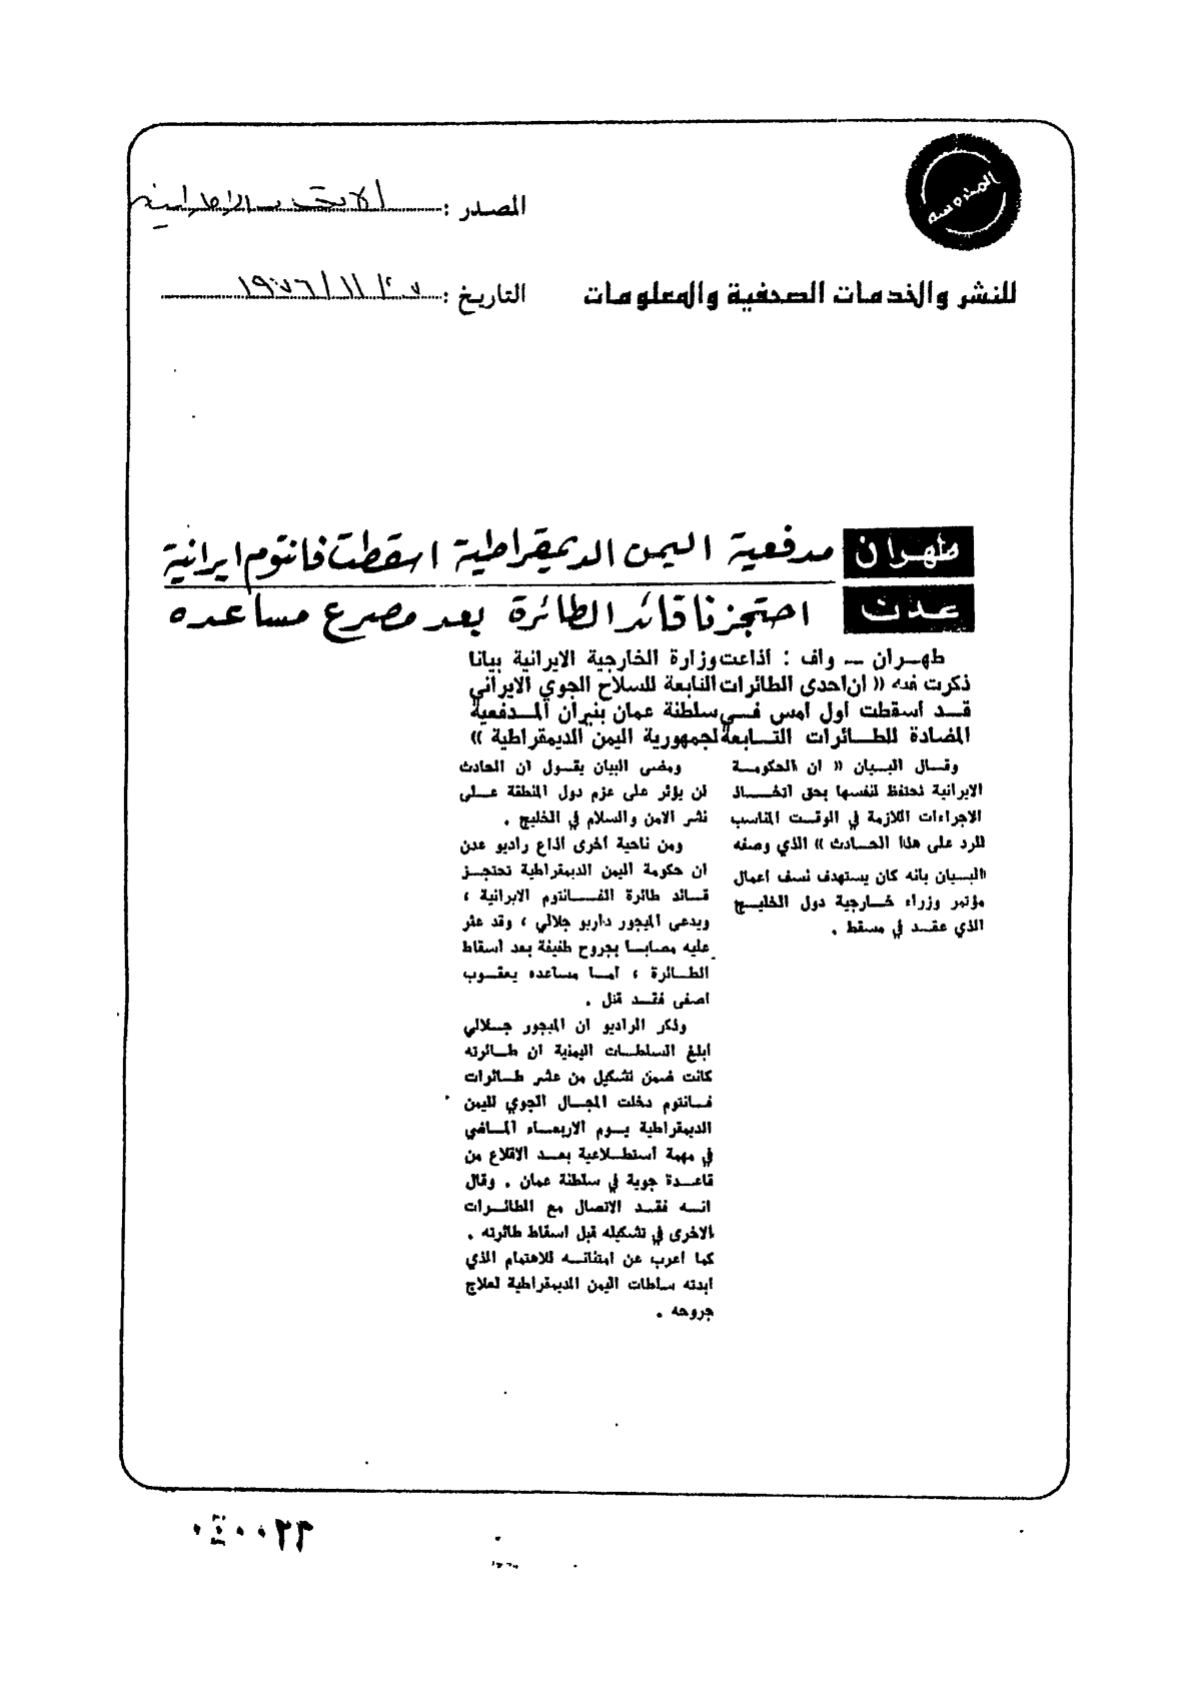 المحروسة
المصدر : الاتحاد الإماراتية
للنشر والخدمات الصحفية والمعلومات
التاريخ : ٢٧ / ١١ / ١٩٧٦
طهران مدفعية اليمن الديمقراطية اسقطت فانتوم ايرانية
عدن احتجزنا قائد الطائرة بعد مصرع مساعده
طهران — واف : اذاعت وزارة الخارجية الايرانية بيانا
ذكرت فيه « ان احدى الطائرات التابعة للسلاح الجوي الايراني
قد أسقطت أول أمس في سلطنة عمان بنيران المدفعية
المضادة للطائرات التابعة لجمهورية اليمن الديمقراطية »
وقال البيان « ان الحكومة
الايرانية تحتفظ لنفسها بحق اتخاذ
الاجراءات اللازمة في الوقت المناسب
للرد على هذا الحادث » الذي وصفه
البيان بانه كان يستهدف نسف اعمال
مؤتمر وزراء خارجية دول الخليج
الذي عقد في مسقط .
ومضى البيان يقول ان الحادث
لن يؤثر على عزم دول المنطقة على
نشر الامن والسلام في الخليج .
ومن ناحية أخرى اذاع راديو عدن
ان حكومة اليمن الديمقراطية تحتجز
قائد طائرة الفانتوم الايرانية ،
ويدعى الميجور داريو جلالي ، وقد عثر
عليه مصابا بجروح طفيفة بعد أسقاط
الطائرة ، أما مساعده يعقوب
اصفى فقد قتل .
وذكر الراديو ان الميجور جلالي
أبلغ السلطات اليمنية ان طائرته
كانت ضمن تشكيل من عشر طائرات
فانتوم دخلت المجال الجوي لليمن
الديمقراطية يوم الاربعاء الماضي
في مهمة أستطلاعية بعد الاقلاع من
قاعدة جوية في سلطنة عمان . وقال
انه فقد الاتصال مع الطائرات
الاخرى في تشكيله قبل اسقاط طائرته .
كما أعرب عن امتنانه للاهتمام الذي
ابدته سلطات اليمن الديمقراطية لعلاج
جروحه .